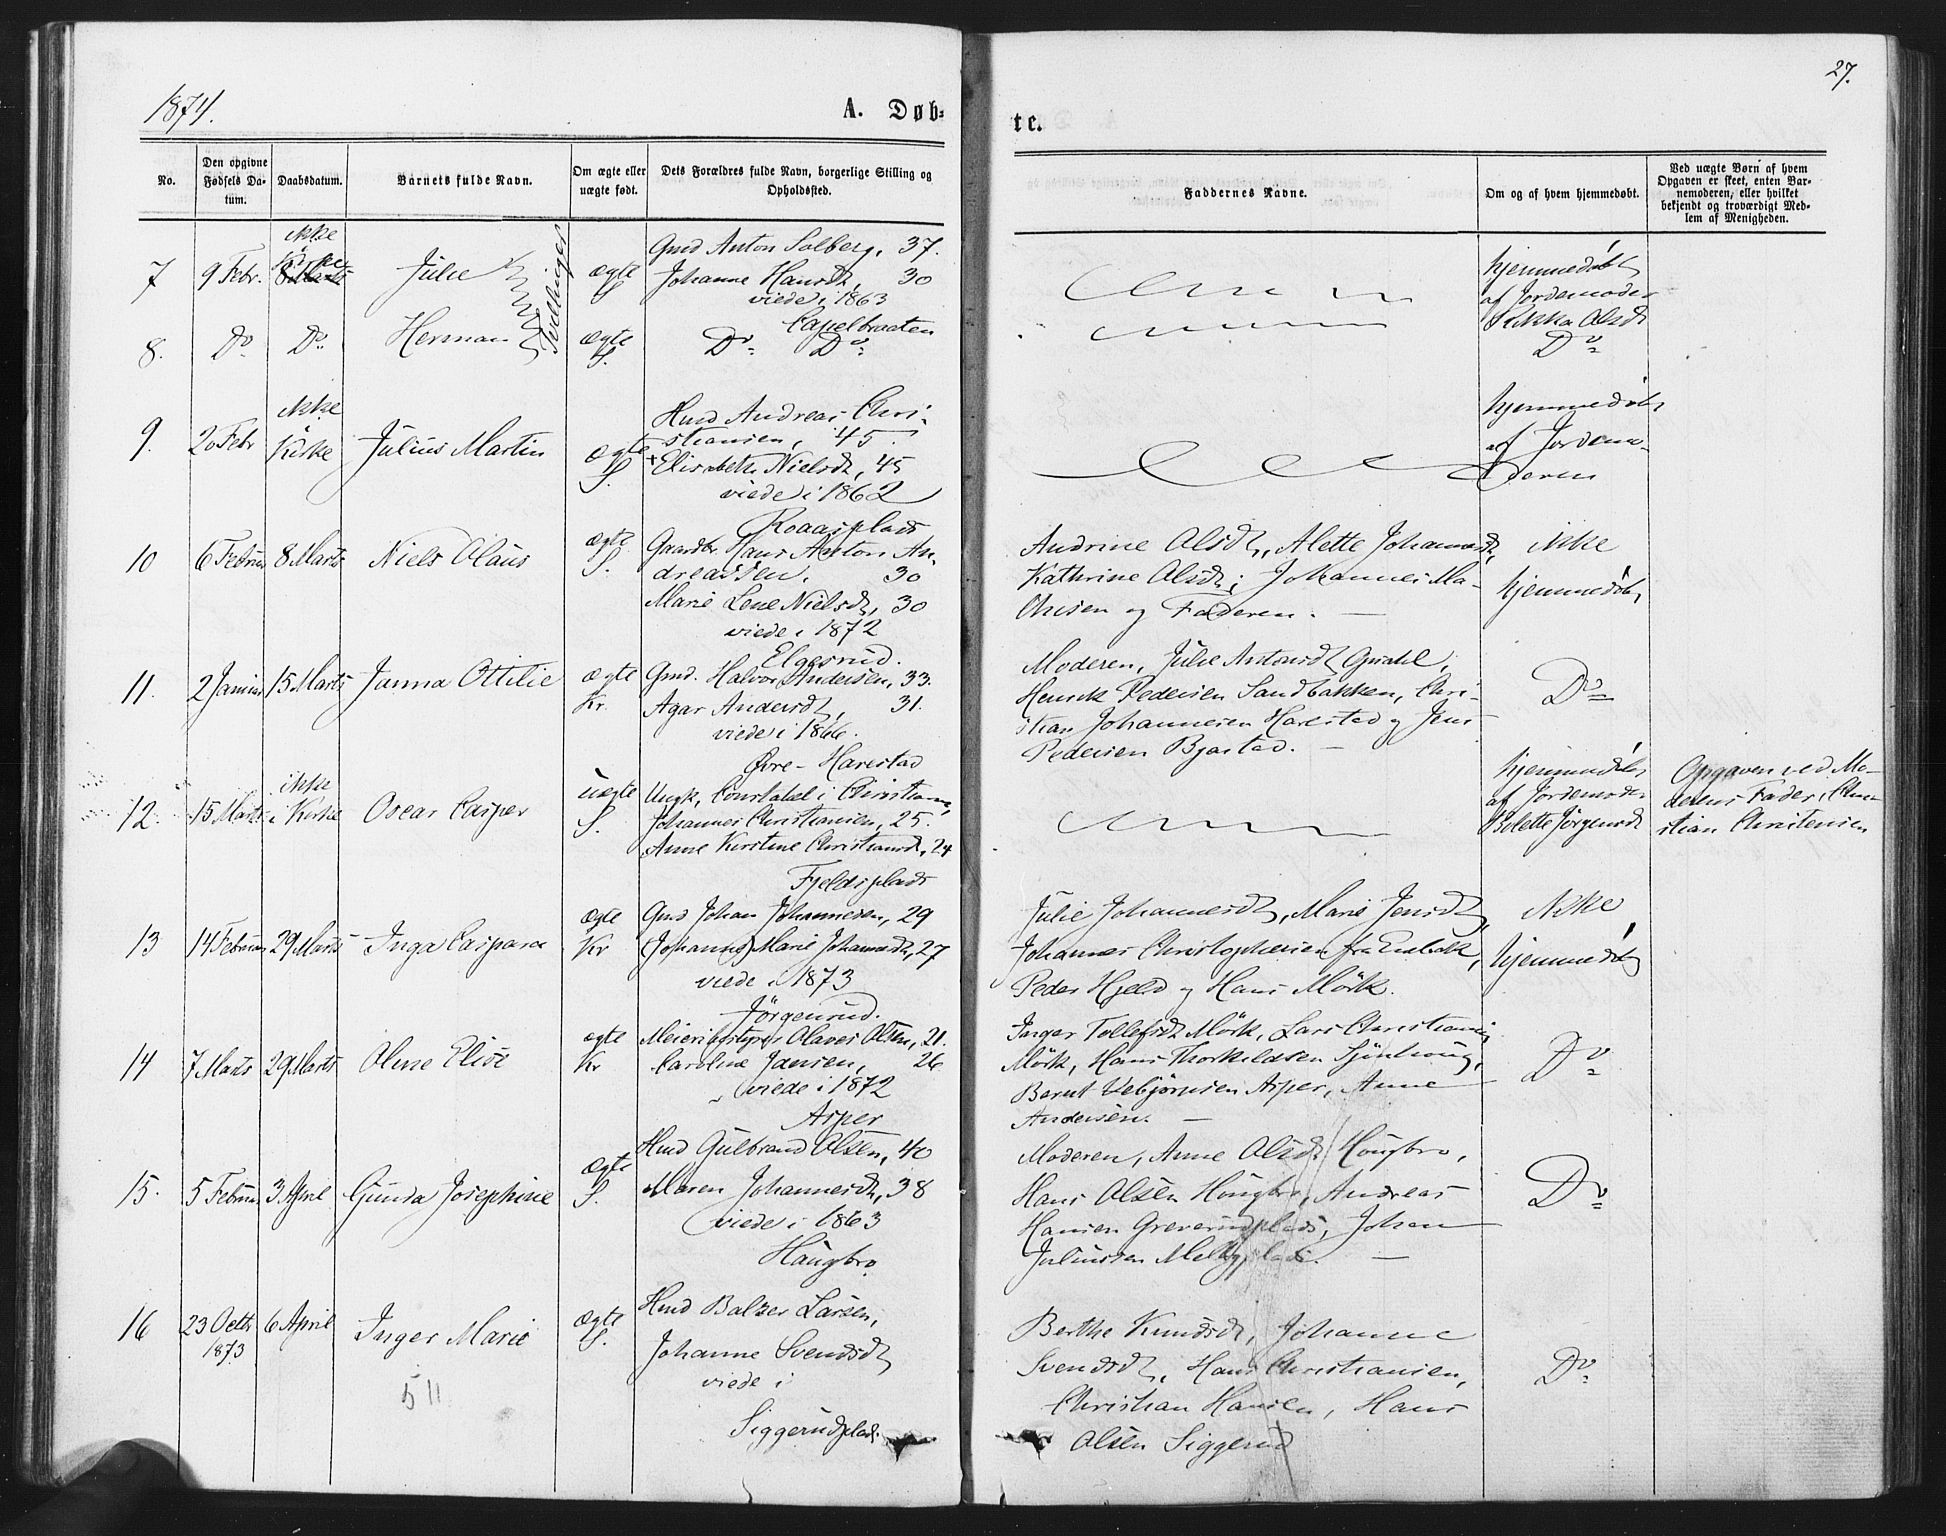 1874.
A. Døb-
te.
27.
No.
Den opgivne Fødsels Datum.
Daabsdatum.
Barnets fulde Navn.
Om ægte eller uægte født.
Dets Forældres fulde Navn, borgerlige Stilling og Opholdssted.
Faddernes Navne.
Om og af hvem hjemmedøbt.
Ved uægte Børn af hvem Opgaven er skeet, enten Barnemoderen, eller hvilket bekjendt og troværdigt Medlem af Menigheden.
7
9 Febr.
ikke
i Kirke
Julie
Tvillinger
ægte
Gmd Anton Solberg, 37.
Johanne Hansdt, 30
viede i 1863
Capelbraaten
hjemmedøbt
af Jordemoder
Olsdt
8.
Do
Do
Herman
ægte
S.
Do Do
Do
9.
20 Febr
ikke
i
Kirke
Julius Martin
ægte
S.
Hmd Andreas Chri-
stiansen, 45.
Elisabeth Nielsdt, 45
viede i 1862
Roaasplads
hjemmedøbt
af Jordemo-
deren
10
6 Februar
8 Marts
Niels Olaus
ægte
S.
Gaardbr. Hans Anton An-
dreassen. 30
Marie Lene Nielsdt, 30
viede i 1872
Elgesrud.
Andrine Olsdt, Alette Johannesdt,
Kathrine Olsdt; Johannes Ma-
thisen og Faderen. —
ikke
hjemmedøbt
11.
2 Januar
15 Marts
Janna Ottilie
ægte
Kr.
Gmd. Halvor Andersen, 33.
Agar Andersdt, 31.
viede i 1866.
Øvre-Harestad
Moderen, Julie Antonsdt,
Henrik Pedersen Sandbakken, Chri-
stian Johannesen Harestad og Jens
Pedersen Bjastad. —
Do
12.
15 Marts
ikke
i Kirke
Oscar Casper
uægte
S.
Ungk, Constabel i Christiania
Johannes Christiansen, 25.
Anne Kirstine Christiansdt, 24
Fjeldsplads
hjemmedøbt
af Jordemoder
Bolette Jørgensdt
Opgaven ved Mo-
derens Fader, Chri-
stian Christensen
13
14 Februar
29 Marts
Inga Caspara
ægte
Kr
Gmd Johan Johannesen, 29
(Johanne) Marie Johannesdt, 27
viede i 1873
Jørgenrud.
Julie Johannesdt, Marie Jensdt,
Johannes Christophersen fra Enebak,
Peder Hjeld og Hans Mörk.
ikke
hjemmedøbt
14
7 Marts
29 Marts
Oline Elise
ægte
Kr
Meieribestyrer Olaves Olsen, 21.
Caroline Jansen, 26
viede i 1872
Asper
Inger Tollefsdt Mörk, Lars Christiansen
Mörk, Hans Thorkildsen,
Bernt Vebjørnsen Asper, Anne
Andersen. —
Do
15.
5 Februar
3 April
Gunda Josephine
ægte
S.
Hmd Gulbrand Olsen, 40
Maren Johannesdt, 38
viede i 1863
Haugbro
Moderen, Anne Olsdt Hougbro,
Hans Olsen Hougbro, Andreas
Hansen Greverudplads, Johan
Juliussen Melbyplads. —
Do
16
23 Octbr
1873
6 April
Inger Marie
ægte
S.
Hmd Balzer Larsen,
Johanne Svendsdt
viede i
Siggerudplads
Berthe Knudsdt, Johanne
Svendsdt, Hans Christiansen,
Christian Hansen, Hans
Olsen Siggerud
Do
5 11